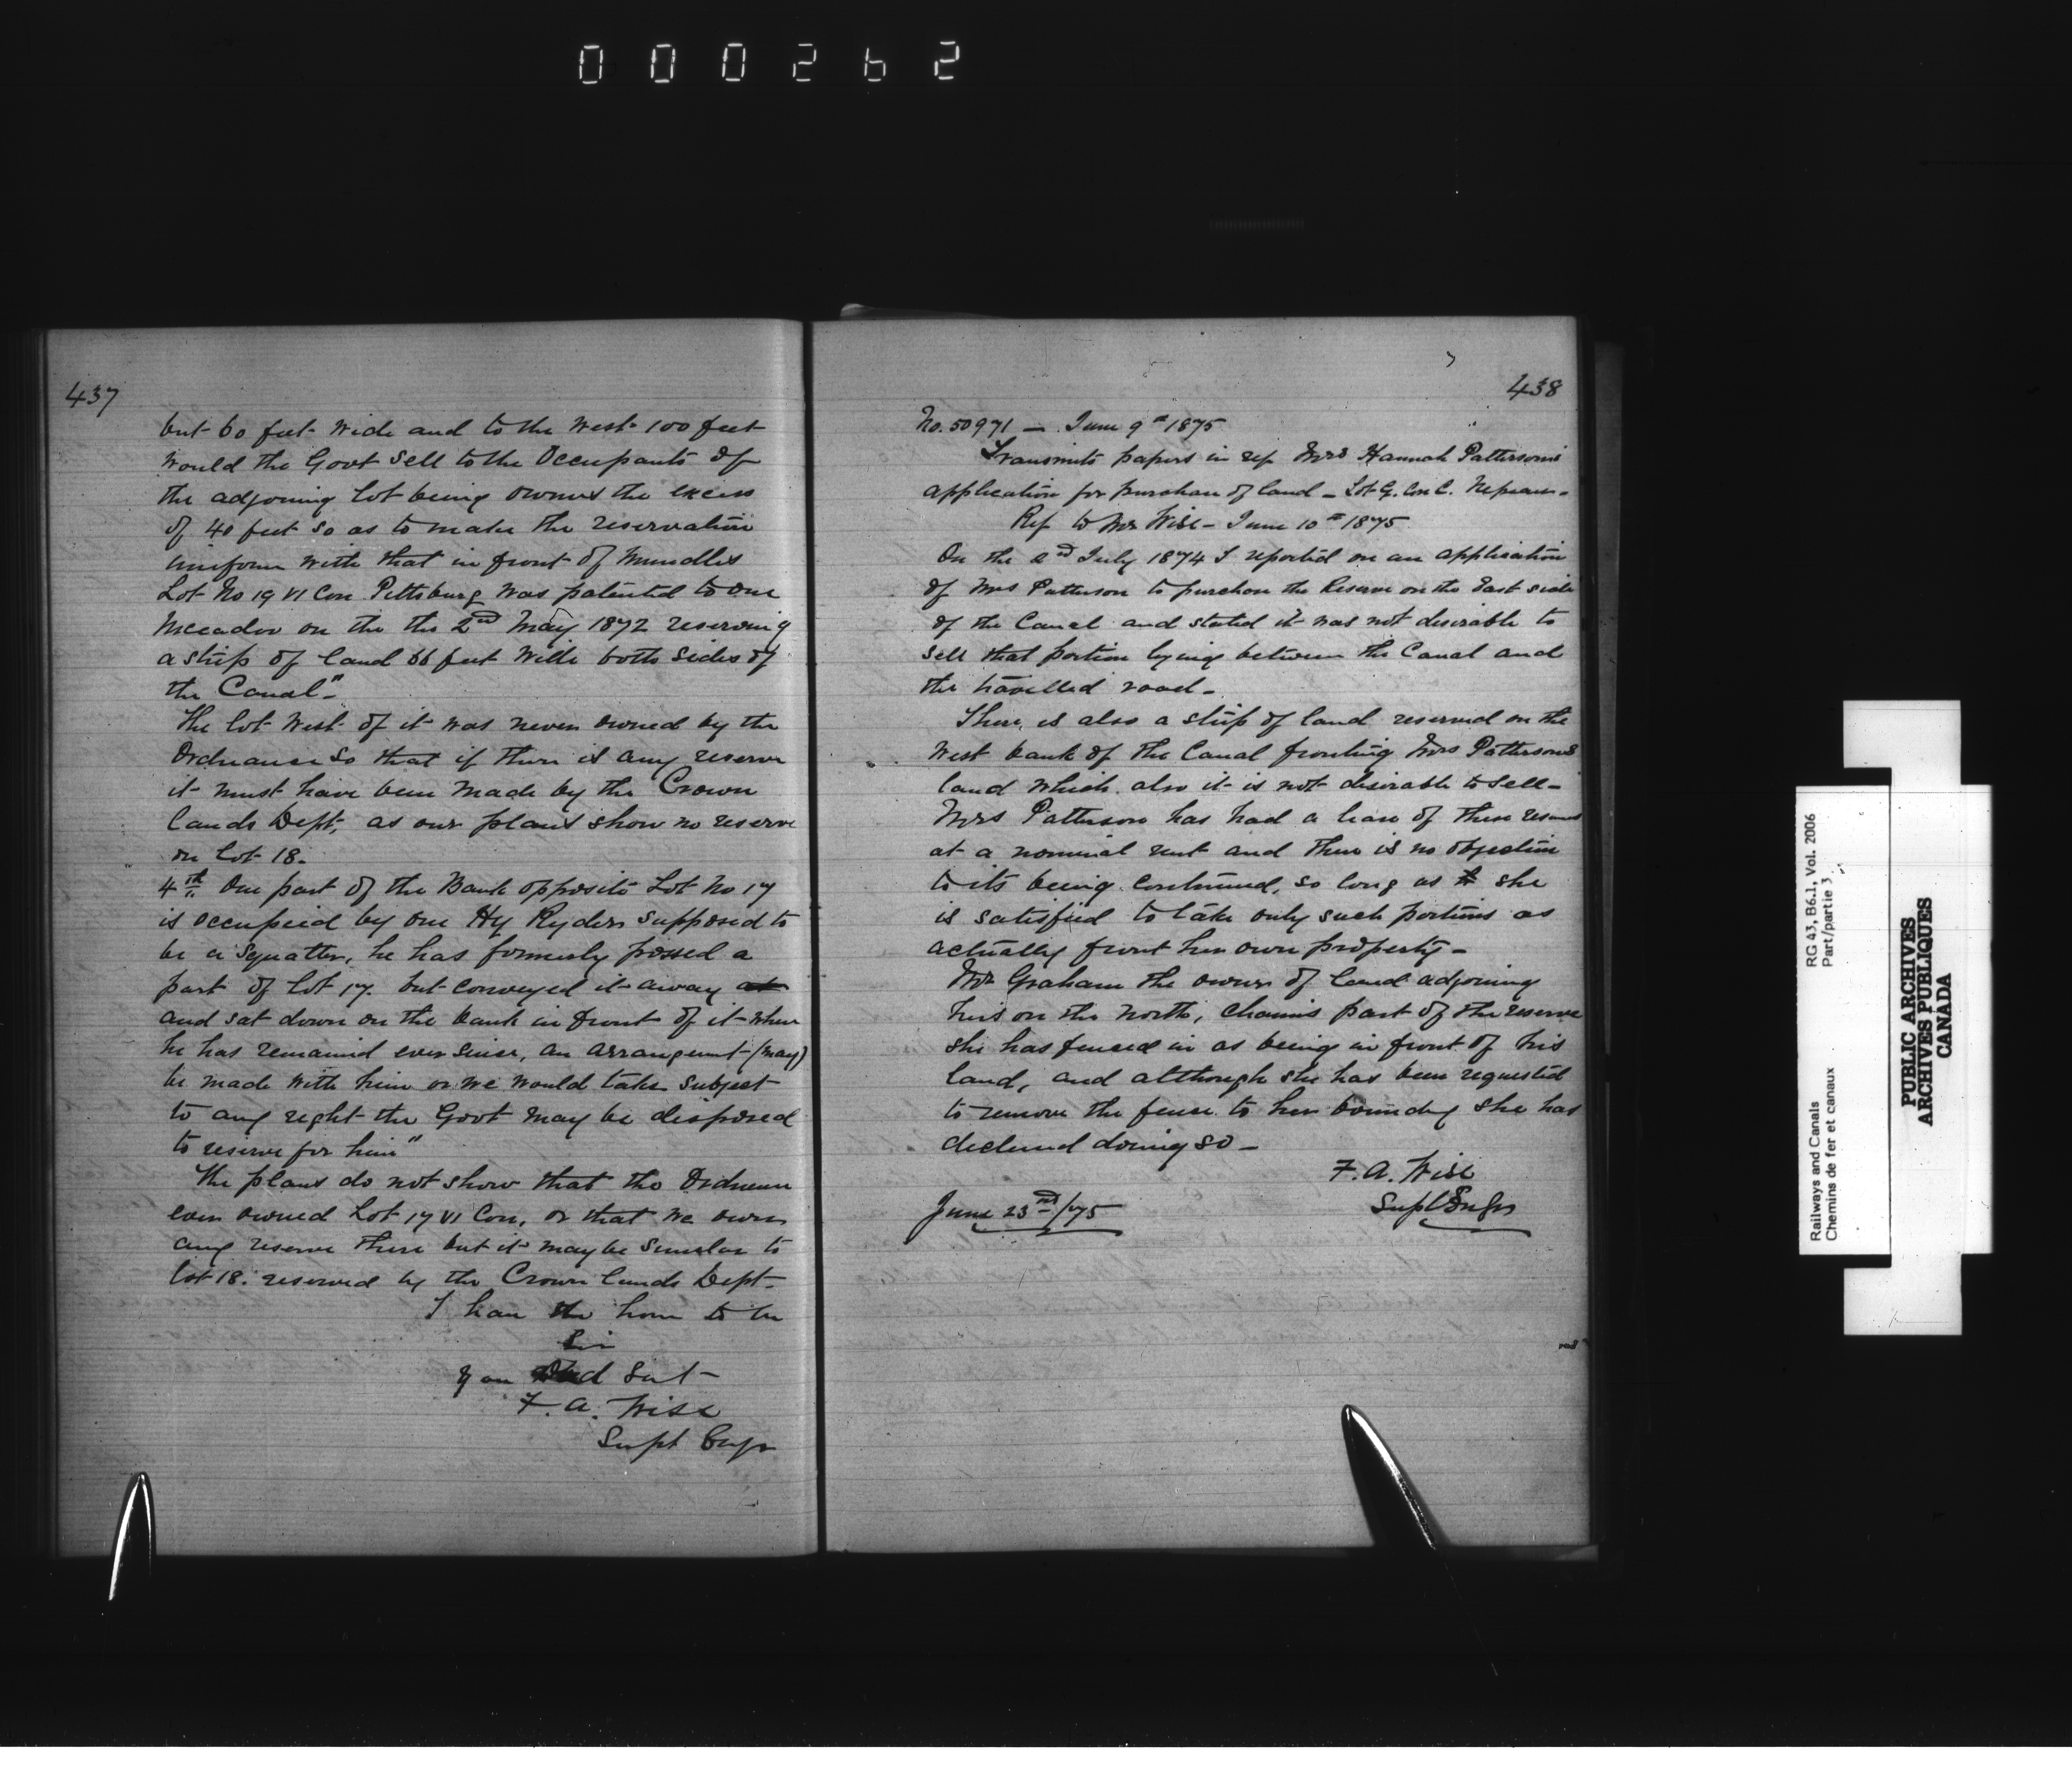 000262
437
but 60 feet wide and to the West 100 feet
Would the Govt sell to the Occupants of
the adjoining lot being owners the excess
of 40 feet so as to make the reservation
uniform with that in front of Mundles
Lot No 19 VI Con Pittsburg was patented to one
on the the 2nd May 1872 reserving
a strip of land 66 feet Wide both sides of
the Canal"-
The lot West of it was never owned by the
Ordnance so that if there is any reserve
it must have been made by the Crown
Lands Dept, as our plans show no reserve
on Lot 18.
4th One part of the Bank opposite Lot No 17
is occupied by one Hy Ryders supposed to
be a squatter, he has formerly possed a
part of Lot 17. but conveyed it away at
and sat down on the bank in front of it where
he has remained ever since, an arrangement (may)
be made with him or we would take subject
to any right the Govt may be disposed
to reserve for him"
The plans do not show that the Ordnance
ever owned Lot 17 VI Con, or that we own
any reserve there but it may be similar to
lot 18. reserved by the Crown Lands Dept-
I have the honor to be
Sir
Your Obed Sert-
F. A. Wise
Supt Engr
438
No. 50971 - June 9th 1875
Transmits papers in ref Mrs Hannah Patterson's
application for purchase of land - Lot G. Con C. Nepean -
Ref to Mr Wise - June 10th 1875
On the 2nd July 1874 I reported on an application
of Mrs Patterson to purchase the Reserve on the East side
of the Canal and stated it was not desirable to
sell that portion lying between the Canal and
the travelled road -
There, is also a strip of land reserved on the
West bank of the Canal fronting Mrs Pattersons
land which also it is not desirable to sell -
Mrs Patterson has had a lease of these reserves
at a nominal rent and there is no objection
to its being continued, so long as she
is satisfied to take only such portions as
actually front her own property -
Mr Graham the owner of land adjoining
hers on the North, claims part of the reserve
she has fenced in as being in front of his
land, and although she has been requested
to remove the fence to her boundry she has
declined doing so -
F. A. Wise
Supt Engr
June 23rd/75
RG 43, B6.1, Vol. 2006
Part/partie 3
Railways and Canals
Chemins de fer et canaux
PUBLIC ARCHIVES
ARCHIVES PUBLIQUES
CANADA